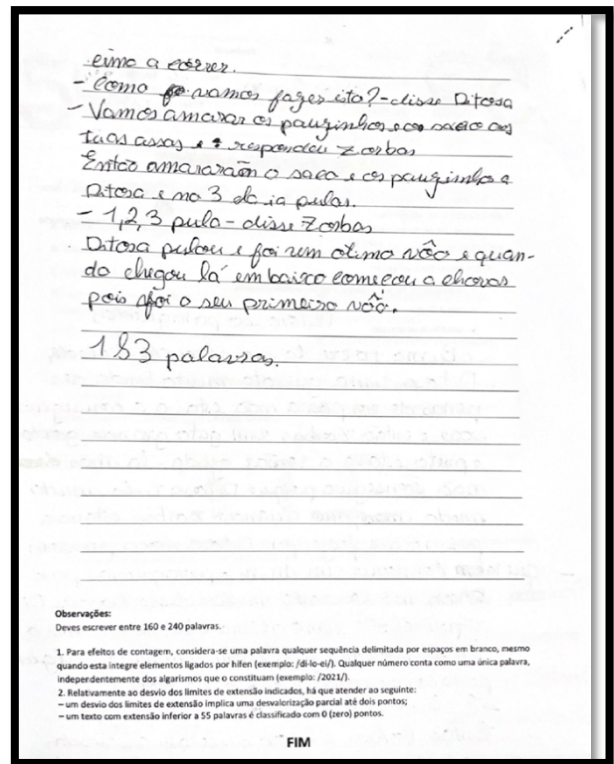 eimo a correr.
- Como vamos fazer isto? - disse Ditosa
- Vamos amarar os pauzinhos e o saco as
tuas assas e respondeu Zorbas
Então amararão o saco e os pauzinhos a
Ditosa e no 3 ela ia pular.
- 1, 2, 3 pula - disse Zorbas
Ditosa pulou e foi um otimo vôo e quan-
do chegou lá em baixo começou a chorar
pois foi o seu primeiro voô.
183 palavras.
Observações:
Deves escrever entre 160 e 240 palavras.
1. Para efeitos de contagem, considera-se uma palavra qualquer sequência delimitada por espaços em branco, mesmo
quando esta integre elementos ligados por hífen (exemplo: /di-lo-ei/). Qualquer número conta como uma única palavra,
independentemente dos algarismos que o constituam (exemplo: /2021/).
2. Relativamente ao desvio dos limites de extensão indicados, há que atender ao seguinte:
– um desvio dos limites de extensão implica uma desvalorização parcial até dois pontos;
– um texto com extensão inferior a 55 palavras é classificado com 0 (zero) pontos.
FIM